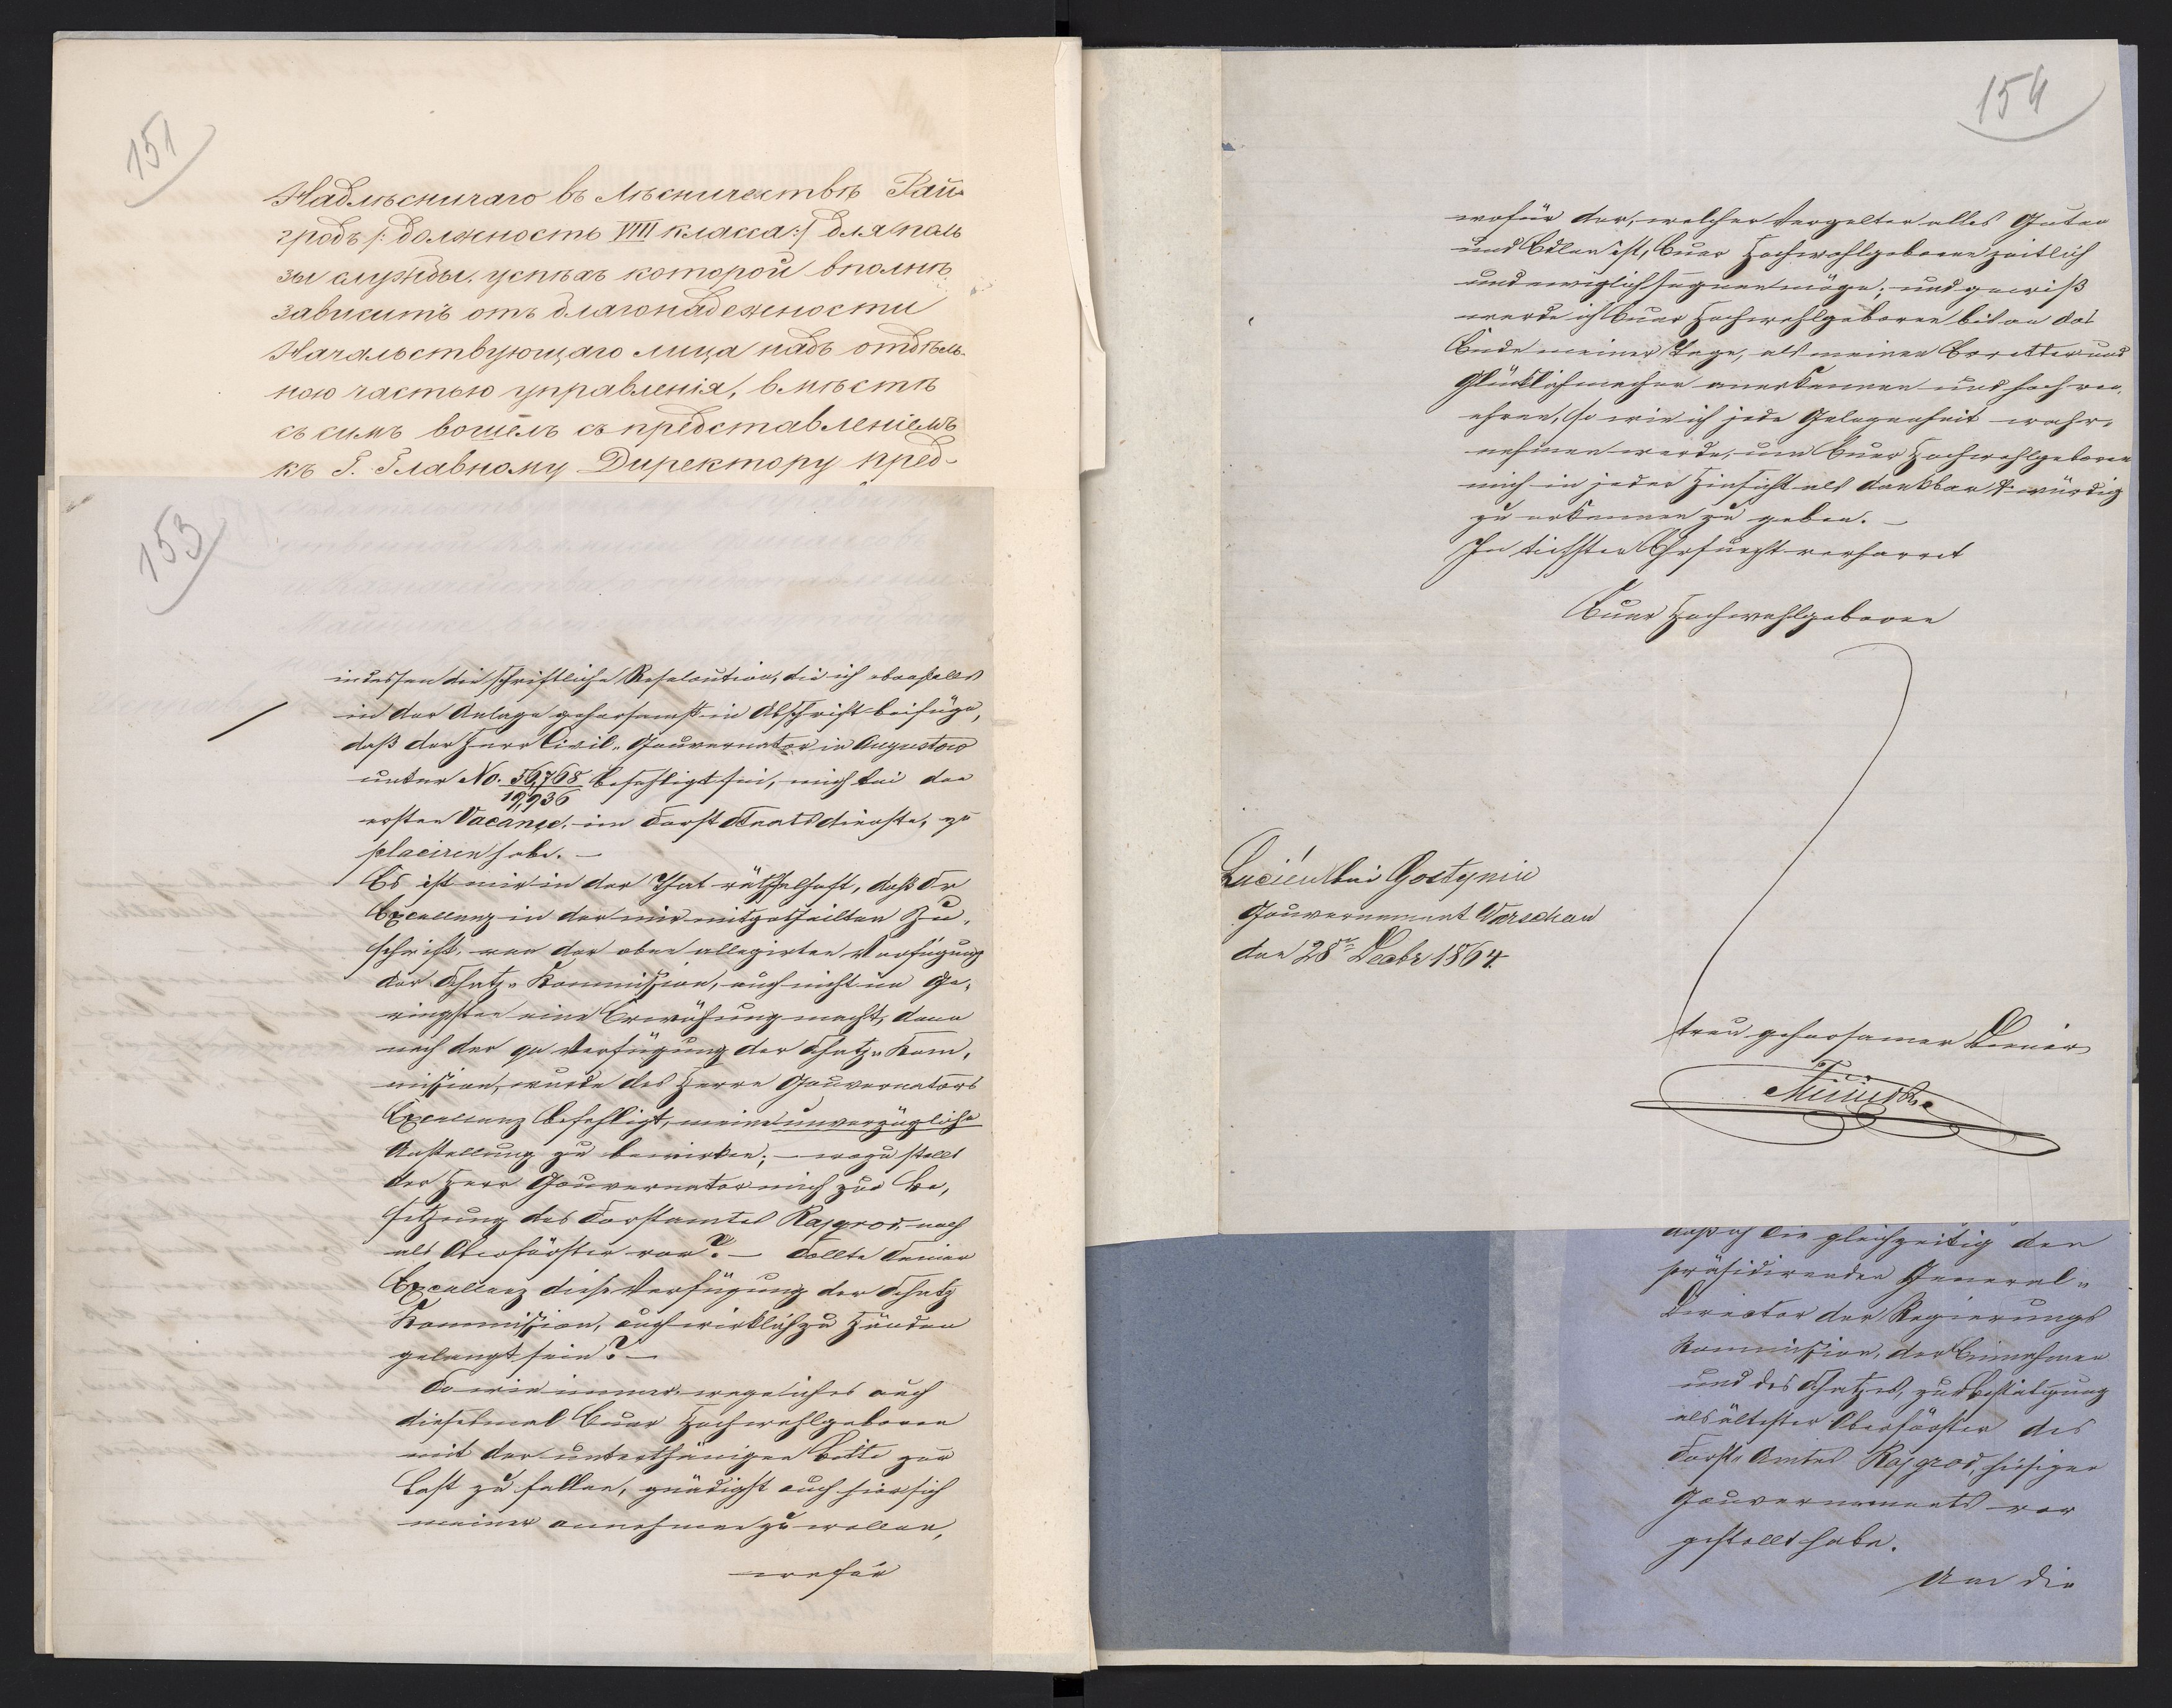 151
Надлѣсничаго въ Лѣсничествѣ Рай-
гродъ /: должность VIII класса :/ для поль
зы службы, успѣхъ которой вполнѣ
зависитъ отъ благонадежности
Начальствующаго лица надъ отдѣль-
ною частью управленія, вмѣстѣ
съ симъ вошелъ съ представленіемъ
къ Г. Главному Директору пред-
153
indessen die schriftliche Resoloution, die ich ebenfalls
in der Anlage gehorsamst in Abschrift beifüge,
daß der Herr Civil-Gouvernator in Augustow
unter No. 56,768 befehligt sei, mich bei der
19,936
ersten Vacanze, im Forst Staatsdienste, zu
placiren habe. —
Es ist mir in der That räthselhaft, daß Sr
Excellenz in der mir mitgetheilten Zu-
schrift, von der oben allegirten Verfügung
der Schatz-Kommission, auch nicht im Ge-
ringsten eine Erwähnung macht, denn
nach der qu Verfügung der Schatz-Kom-
mission, wurde des Herrn Gouvernators
Excellenz befehligt, meine unverzügliche
Anstellung zu bewirken; — wozu stellt
der Herr Gouvernator mich zur Be-
setzung des Forstamtes Rajgrod, nach
als Oberförster vor? — Sollte Seiner
Excellenz diese Verfügung der Schatz
Kommission, auch wirklich zu Händen
gelangt sein? —
So wie immer, wage ich es auch
diesesmal Euer Hochwohlgeboren
mit der unterthänigen Bitte zur
Last zu fallen, gnädigst auch hier sich
meiner annehmen zu wollen,
wofür
154
wofür der, welcher Vergelter alles Guten
und Edlen ist, Euer Hochwohlgeboren zeitlich
und ewiglich segnen möge; und gewiß
werde ich Euer Hochwohlgeboren bis an das
Ende meiner Tage, als meinen Erretter und
Glücklichmacher anerkennen und hoch ver-
ehren, so wie ich jede Gelegenheit wahr-
nehmen werde, um Euer Hochwohlgeboren
mich in jeder Hinsicht als dankbar & würdig
zu erkennen zu geben. —
In tiefster Ehrfurcht verharret
Euer Hochwohlgeboren
Lucień bei Gostynin
Gouvernement Warschau
den 28ten Decbr 1864.
treu gehorsamer Diener
daß ich Sie gleichzeitig dem
präsidirenden General-
Director der Regierungs
Kommission, der Einnahmen
und des Schatzes, zur Bestätigung
als ältester Oberförster des
Forst-Amtes Rajgrod, hiesigen
Gouvernements vor
gestellt habe.
Um die